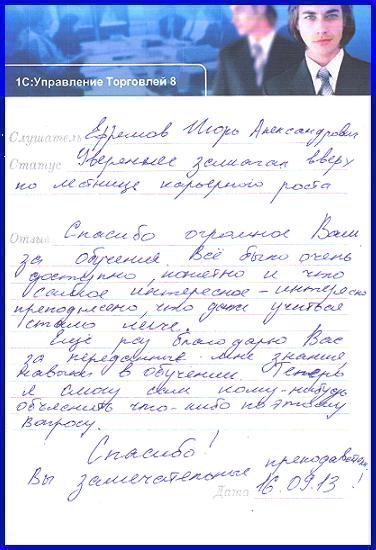 1С:Управление Торговлей 8
Слушатель Ефремов Игорь Александрович
Статус Увереннее зашагал вверх
по лестнице карьерного роста
Отзыв Спасибо огромное Вам
за обучение. Всё было очень
доступно, понятно и что
самое интересное - интересно
преподнесено, что даже учиться
стало легче.
Ещё раз благодарю Вас
за переданные мне знания
навыки в обучении. Теперь
я смогу сам кому-нибудь
объяснить что-нибо по этому
вопросу.
Спасибо!
Вы замечательные преподаватели!
Дата 16.09.13